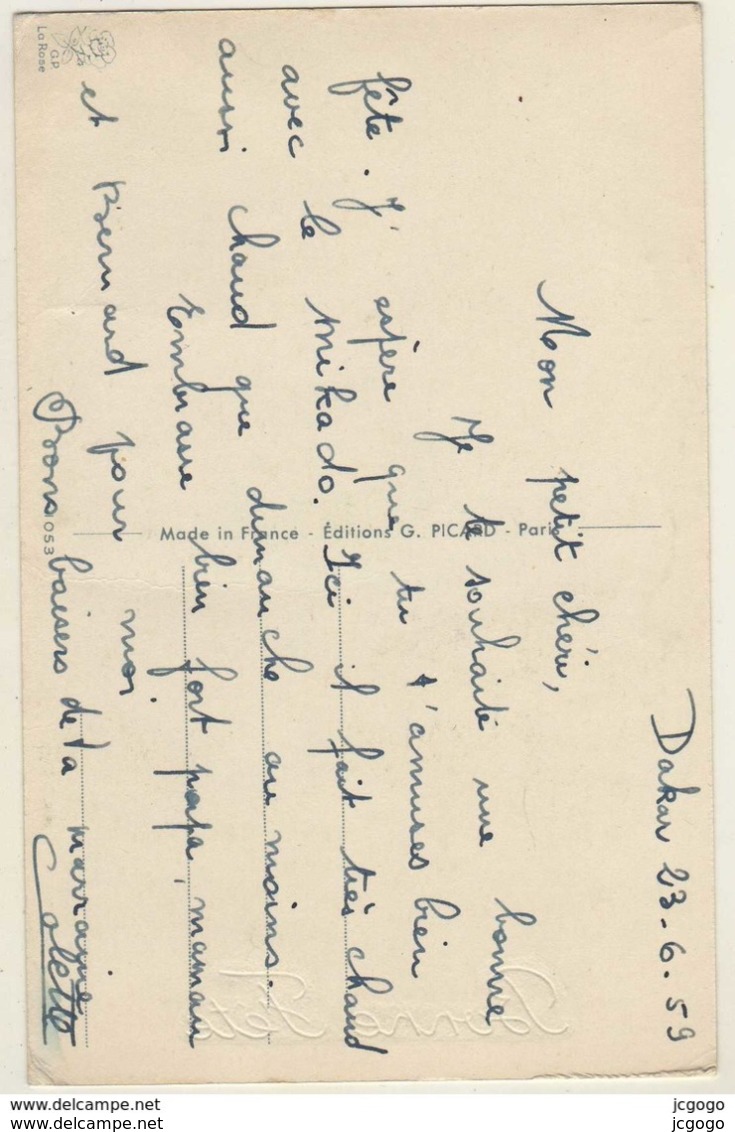 Dakar 23-6.59
Mon petit chéri,
Je te souhaite une bonne
fête. J'espère que tu t'amuses bien
avec le mikado. Ici il fait très chaud
aussi chaud que dimanche au moins.
Embrasse bien fort papa, maman
et Bernard pour moi.
Bons baisers de ta marraine
Colette
Made in France - Éditions G. PICARD - Paris
053
G.P
La Rose
Bonne Fête
jcgogo
jcgogo